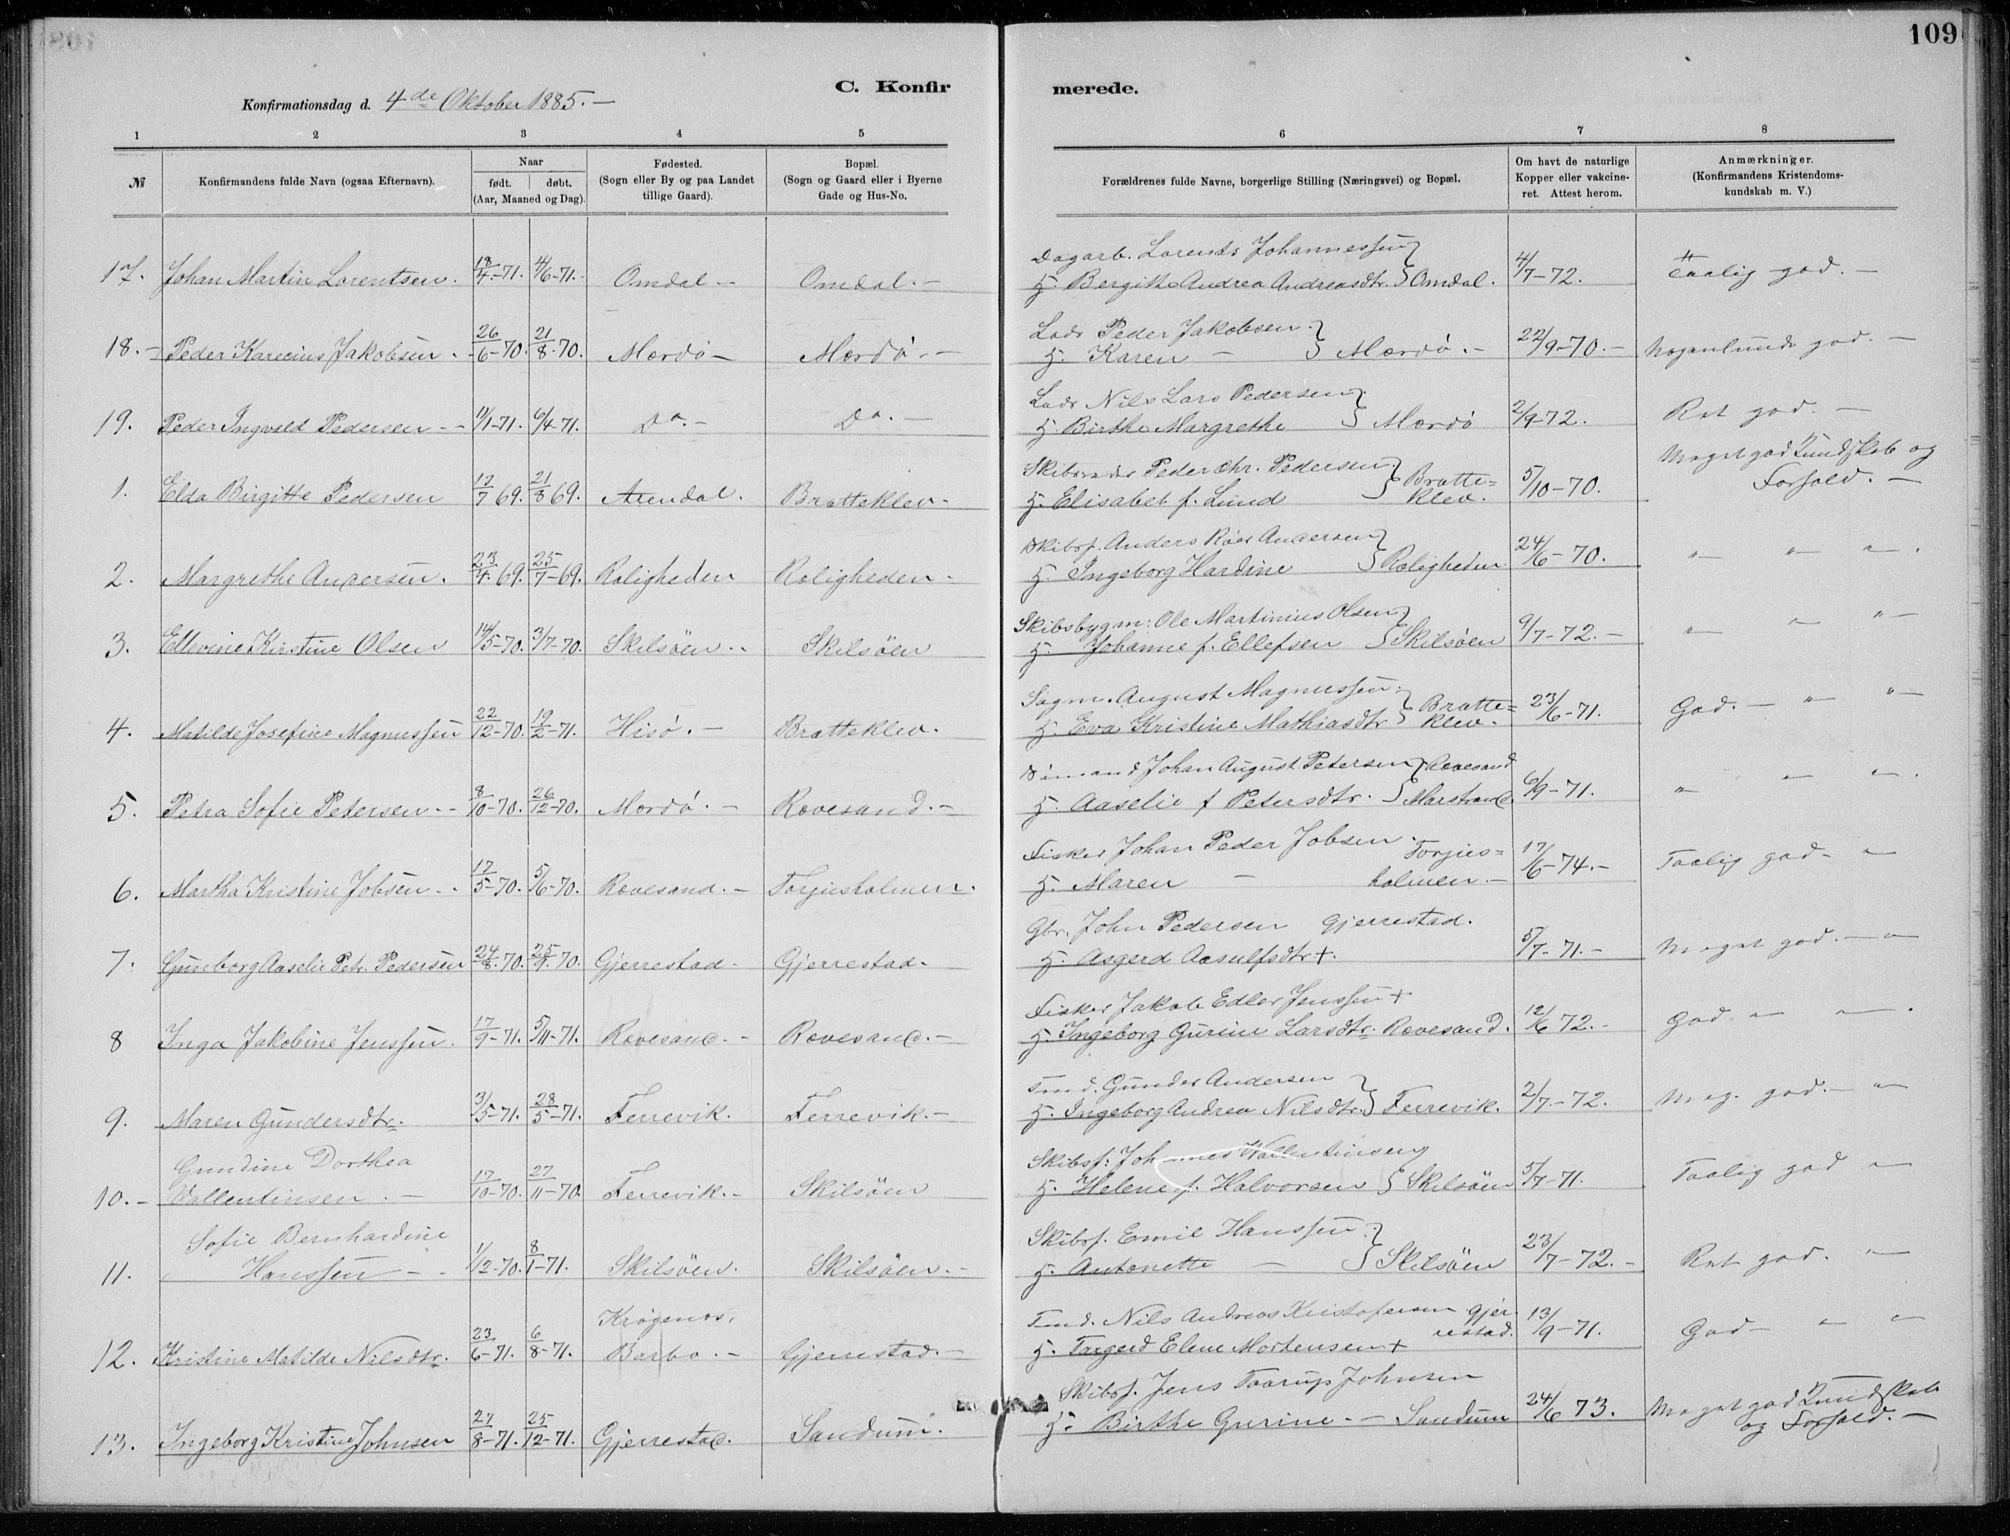 109
C. Konfirmerede.
Konfirmationsdag d. 4de Oktober 1885. —
1 2 3 4 5 6 7 8
№ | Konfirmandens fulde Navn (ogsaa Efternavn). | Naar født. døbt. (Aar, Maaned og Dag). | Fødested. (Sogn eller By og paa Landet tillige Gaard). | Bopæl. (Sogn og Gaard eller i Byerne Gade og Hus-No. | Forældrenes fulde Navne, borgerlige Stilling (Næringsvei) og Bopæl. | Om havt de naturlige Kopper eller vakcineret. Attest herom. | Anmærkninger. (Konfirmandens Kristendomskundskab m. V.)
17. Johan Martin Lorentsen. 18/4-71. 4/6-71. Omdal. - Omdal. - Dagarb. Lorents Johannessen H. Bergitte Andrea Andreasdtr. } Omdal. 4/7-72. Taalig god. —
18. - Peder Karecius Jakobsen. 26/6-70. 21/8-70. Mærdö - Mærdö. - Lods Peder Jakobsen. H. Karen — } Mærdö. - 22/9-70. - Nogenlunde god. —
19. Peder Ingvald Pedersen - 11/1-71. 6/4-71. Do. - Do. - Lods Nils Lars Pedersen H. Birthe Margrethe } Mærdö 2/9-72. Ret god. —
1. Elda Birgitte Pedersen 17/7 69. 21/8 69. Arendal. Bratteklev. Peder Chr. Pedersen H. Elisabet f. Lund } Bratte= klev. 5/10-70. Meget god Kundskab og Forhold. —
2. Margrethe Andersen. 23/4. 69. 25/7-69. Roligheden Roligheden. Skibsf. Anders Roer Andersen H. Ingeborg Hardine } Roligheden 24/6-70. " " "
3. Ellevine Kirstine Olsen 14/5-70. 3/7-70. Skilsöen. Skilsöen Skibsbygm: Ole Martinius Olsen H. Johanne f. Ellefsen } Skilsöen 9/7-72. - " " "
4. Matilde Josefine Magnussen 22/12-70. 19/2-71. Hisö. - Bratteklev. Sagm. August Magnussen. H. Eva Kristine Mathiasdtr } Bratte= klev. 23/6-71. God. - " "
5. Petra Sofie Petersen - 8/10-70. 26/12-70. Mærdö. - Rævesand. - Sömand Johan August Petersen H. Aaselie f Petersdtr. } Rævesand Marstrand. 6/9-71. " " "
6. Martha Kristine Jobsen - 17/5-70. 5/6-70. Rævesand. - Torjusholmen. Fisker Johan Peder Jobsen H. Maren — Torjus= holmen. - 17/6-74. - Taalig god. "
7. Gunborg Aaselie Petr. Pedersen 24/8. 70. 25/9. 70. Gjerrestad - Gjerrestad. Gbr. John Pedersen Gjerrestad. H. Asgerd Aasulfsdtr +. 5/7-71. - Meget god. - "
8 Inga Jakobine Jenssen. 17/9-71. 5/11-71. Rævesand. - Rævesand. - Fisker Jakob Edler Jenssen + H. Ingeborg Gurine Larsdtr. Rævesand. 12/6 72. - God. " "
9. Maren Gundersdtr. 3/5-71. 28/5-71. Færevik. Færevik. - Tmd. Gunder Andersen H. Ingeborg Andrea Nilsdtr. } Færevik. 2/7-72. Meg. god. - "
10. - Gundine Dorthea Vallentinsen. - 17/10-70. 27/11-70. Færevik. - Skilsöen Skibsf. Johannes Vallentinsen H. Helene f. Halvorsen } Skilsöen 5/7-71. Taalig god "
11. Sofie Bernhardine Hanssen - 1/12-70. 8/1-71. Skilsöen. Skilsöen. - Skibsf. Emil Hanssen. H. Antonette — } Skilsöen 23/7-72. - Ret god. "
12. Kristine Matilde Nilsdtr. 23/6-71. 6/8-71. Krögenæs, Barbo. - Gjerrestad. - Tmd. Nils Andreas Kristofersen H. Torgerd Elene Mortensen + Gjer- restad. 13/9-71. God - " "
13. Ingeborg Kristine Johnsen 27/8-71. 25/12-71. Gjerrestad. Sandum. Skibsf. Jens Taarup Johnsen H. Birthe Gurine. - Sandum 24/6 73. Meget god Kundskab og Forhold. —